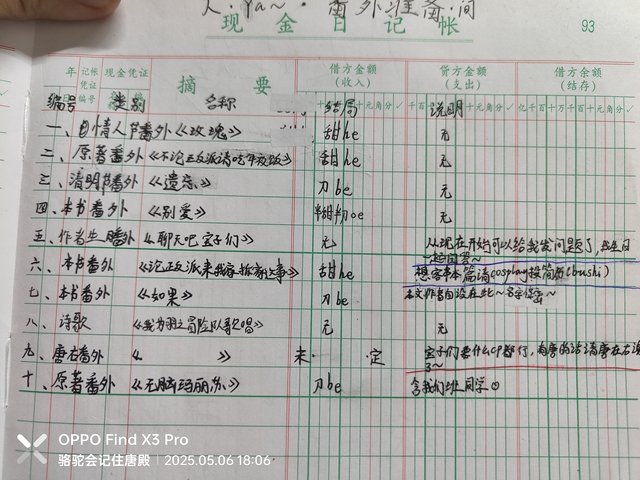 人·Ya~·番外准备·间
现金日记帐
93
年 记帐凭证编号 现金凭证 摘要 借方金额(收入) 贷方金额(支出) 借方余额(结存)
编号 类别 名称 结局 说明
一、白情人节番外《玫瑰》 甜he 无
二、原著番外《不论正反派请吃年夜饭》 甜he 无
三、清明节番外《遗忘》 刀be 无
四、本书番外《别爱》 无
五、作者生日番外《聊天吧宝子们》 无 从现在开始可以给我发问题了,我生日一起回答~
六、本书番外《论正反派来我家拆家这事》 甜he 想客串本篇请cosplay投简历(bushi)
七、本书番外《如果》 刀be 本文作者自设在此~名字保密~
八、诗歌《我为羽之冒险队歌唱》 无 无
九、唐右番外《 》 未·定 宝子们要什么CP都行,有唐的话请磨在右浏了~
十、原著番外《无脑玛丽苏》 刀be 含我们班同学
OPPO Find X3 Pro
骆驼会记住唐殿 | 2025.05.06 18:06